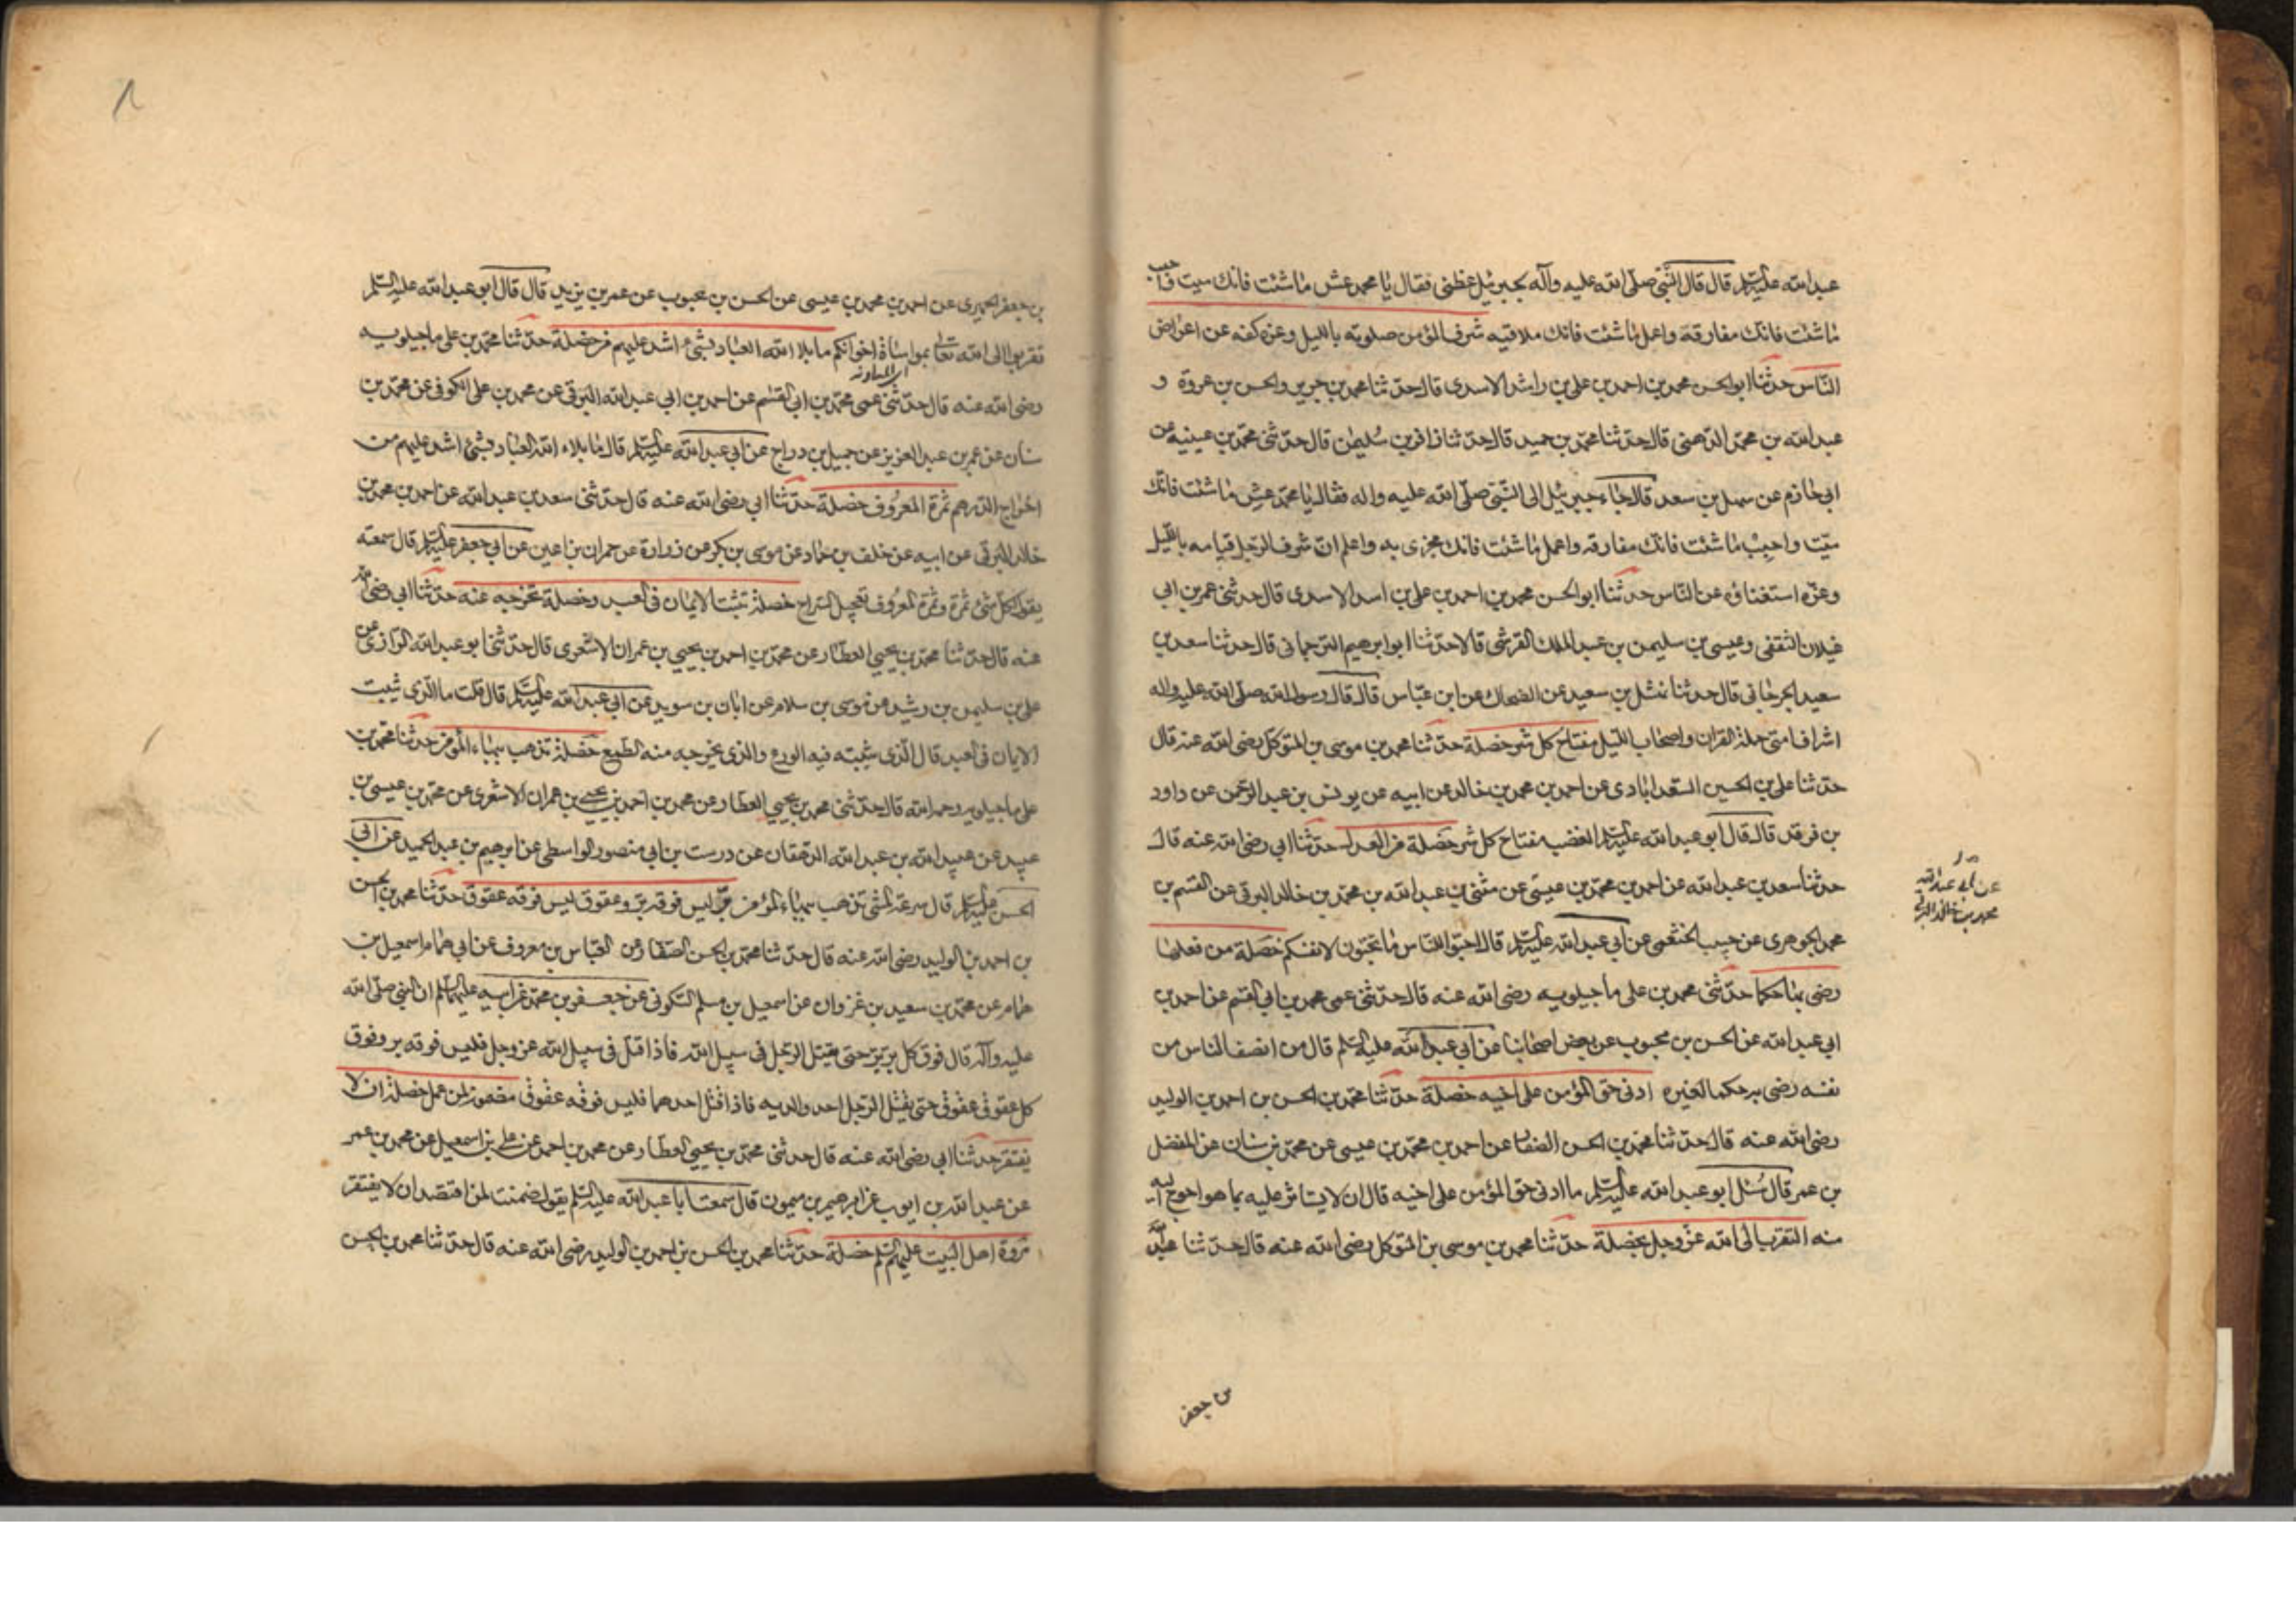 عبدالله عليه السلم قال قال النبي صلى الله عليه وآله لجبرئيل عظني فقال يا محمد عش ما شئت فانك ميت واحبب
ما شئت فانك مفارقه واعمل ما شئت فانك ملاقيه شرف المؤمن صلوته بالليل وعزه كفه عن اعراض
الناس حدثنا ابوالحسن محمد بن احمد بن علي بن راشد الاسدى قال حدثنا محمد بن جرير والحسن بن عروة و
عبدالله بن محمد الدهني قال حدثنا محمد بن حميد قال حدثنا زافر بن سليمن قال حدثني محمد بن عيينه عن
ابي حازم عن سهل بن سعد قال جاء جبرئيل الى النبي صلى الله عليه واله فقال يا محمد عش ما شئت فانك
ميت واحبب ما شئت فانك مفارقه واعمل ما شئت فانك مجزى به واعلم ان شرف الرجل قيامه بالليل
وعزه استغناؤه عن الناس حدثنا ابوالحسن محمد بن احمد بن علي بن اسد الاسدى قال حدثني عمر بن ابي
غيلان الثقفي وعيسى بن سليمن بن عبدالملك القرشي قالا حدثنا ابوابرهيم الترجماني قال حدثنا سعد بن
سعيد الجرجاني قال حدثنا نهشل بن سعيد عن الضحاك عن ابن عباس قال قال رسول الله صلى الله عليه واله
اشراف امتي حملة القران واصحاب الليل مفتاح كل شر خصلة حدثنا محمد بن موسى بن المتوكل رضى الله عنه قال
حدثنا علي بن الحسين السعدابادى عن احمد بن محمد بن خالد عن ابيه عن يونس بن عبدالرحمن عن داود
بن فرقد قال قال ابوعبدالله عليه السلم الغضب مفتاح كل شر خصلة من العدل حدثنا ابي رضى الله عنه قال
حدثنا سعد بن عبدالله عن احمد بن محمد بن عيسى عن مثنى بن عبدالله بن محمد بن خالد البرقى عن القسم بن
عن ابي عبدالله
محمد بن خالد البرقي
محمد الجوهرى عن حبيب الخثعمى عن ابي عبدالله عليه السلم قال احبوا للناس ما تحبون لانفسكم خصلة من فعلها
رضى بها حكما حدثني محمد بن علي ماجيلويه رضى الله عنه قال حدثني عمى محمد بن ابي القسم عن احمد بن
ابي عبدالله عن الحسن بن محبوب عن بعض اصحابنا عن ابي عبدالله عليه السلم قال من انصف الناس من
نفسه رضى به حكما لغيره ادنى حق المؤمن على اخيه خصلة حدثنا محمد بن الحسن بن احمد بن الوليد
رضى الله عنه قال حدثنا محمد بن الحسن الصفار عن احمد بن محمد بن عيسى عن محمد بن سنان عن المفضل
بن عمر قال سئل ابوعبدالله عليه السلم ما ادنى حق المؤمن على اخيه قال ان لا يستاثر عليه بما هو احوج اليه
منه التقرب الى الله عز وجل بخصلة حدثنا محمد بن موسى بن المتوكل رضى الله عنه قال حدثنا عبدالله
بن جعفر
بن جعفر الحميرى عن احمد بن محمد بن عيسى عن الحسن بن محبوب عن عمر بن يزيد قال قال ابوعبدالله عليه السلم
تقربوا الى الله تعالى بمواساة اخوانكم ما بلا الله العباد بشئ اشد عليهم من خصلة حدثنا محمد بن علي ماجيلويه
رضى الله عنه قال حدثني عمى محمد بن ابي القسم عن احمد بن ابي عبدالله البرقى عن محمد بن علي الكوفى عن محمد بن
سنان عن عمر بن عبدالعزيز عن جميل بن دراج عن ابي عبدالله عليه السلم قال ما بلاء الله العباد بشئ اشد عليهم من
اخراج الدرهم ثمرة المعروف خصلة حدثنا ابي رضى الله عنه قال حدثني سعد بن عبدالله عن احمد بن محمد بن
خالد البرقى عن ابيه عن خلف بن حماد عن موسى بن بكر عن زرارة عن حمران بن اعين عن ابي جعفر عليه السلم قال سمعته
يقول لكل شئ ثمرة وثمرة المعروف تعجيل السراح خصلة تثبت الايمان فى العبد وخصلة تخرجه عنه حدثنا ابي رضى الله
عنه قال حدثنا محمد بن يحيى العطار عن محمد بن احمد بن يحيى بن عمران الاشعرى قال حدثني ابوعبدالله الرازى عن
علي بن سليمن بن رشيد عن موسى بن سلام عن ابان بن سويد عن ابي عبدالله عليه السلم قال قلت ما الذى يثبت
الايمان فى العبد قال الذى يثبته فيه الورع والذى يخرجه منه الطمع خصلة تذهب ببهاء المؤمن حدثنا محمد بن
علي ماجيلويه رحمه الله قال حدثني محمد بن يحيى العطار عن محمد بن احمد بن يحيى بن عمران الاشعرى عن محمد بن عيسى بن
عبيد عن عبيدالله بن عبدالله الدهقان عن درست بن ابي منصور الواسطى عن ابرهيم بن عبدالحميد عن ابي
الحسن عليه السلم قال سرعة المشى تذهب ببهاء المؤمن بر ليس فوقه بر وعقوق ليس فوقه عقوق حدثنا محمد بن الحسن
بن احمد بن الوليد رضى الله عنه قال حدثنا محمد بن الحسن الصفار عن العباس بن معروف عن ابي همام اسمعيل بن
همام عن محمد بن سعيد بن غزوان عن اسمعيل بن مسلم السكونى عن جعفر بن محمد عن ابيه عليهما السلم ان النبي صلى الله
عليه وآله قال فوق كل بر بر حتى يقتل الرجل فى سبيل الله فاذا قتل فى سبيل الله عز وجل فليس فوقه بر وفوق
كل عقوق عقوق حتى يقتل الرجل احد والديه فاذا قتل احدهما فليس فوقه عقوق مضمون لمن عمل خصلة ان لا
يفتقر حدثنا ابي رضى الله عنه قال حدثني محمد بن يحيى العطار عن محمد بن احمد عن علي بن اسمعيل عن محمد بن عمر
عن عبدالله بن ايوب عن ابرهيم بن ميمون قال سمعت ابا عبدالله عليه السلم يقول ضمنت لمن اقتصد ان لا يفتقر
مروة اهل البيت عليهم السلم خصلة حدثنا محمد بن الحسن بن احمد بن الوليد رضى الله عنه قال حدثنا محمد بن الحسن